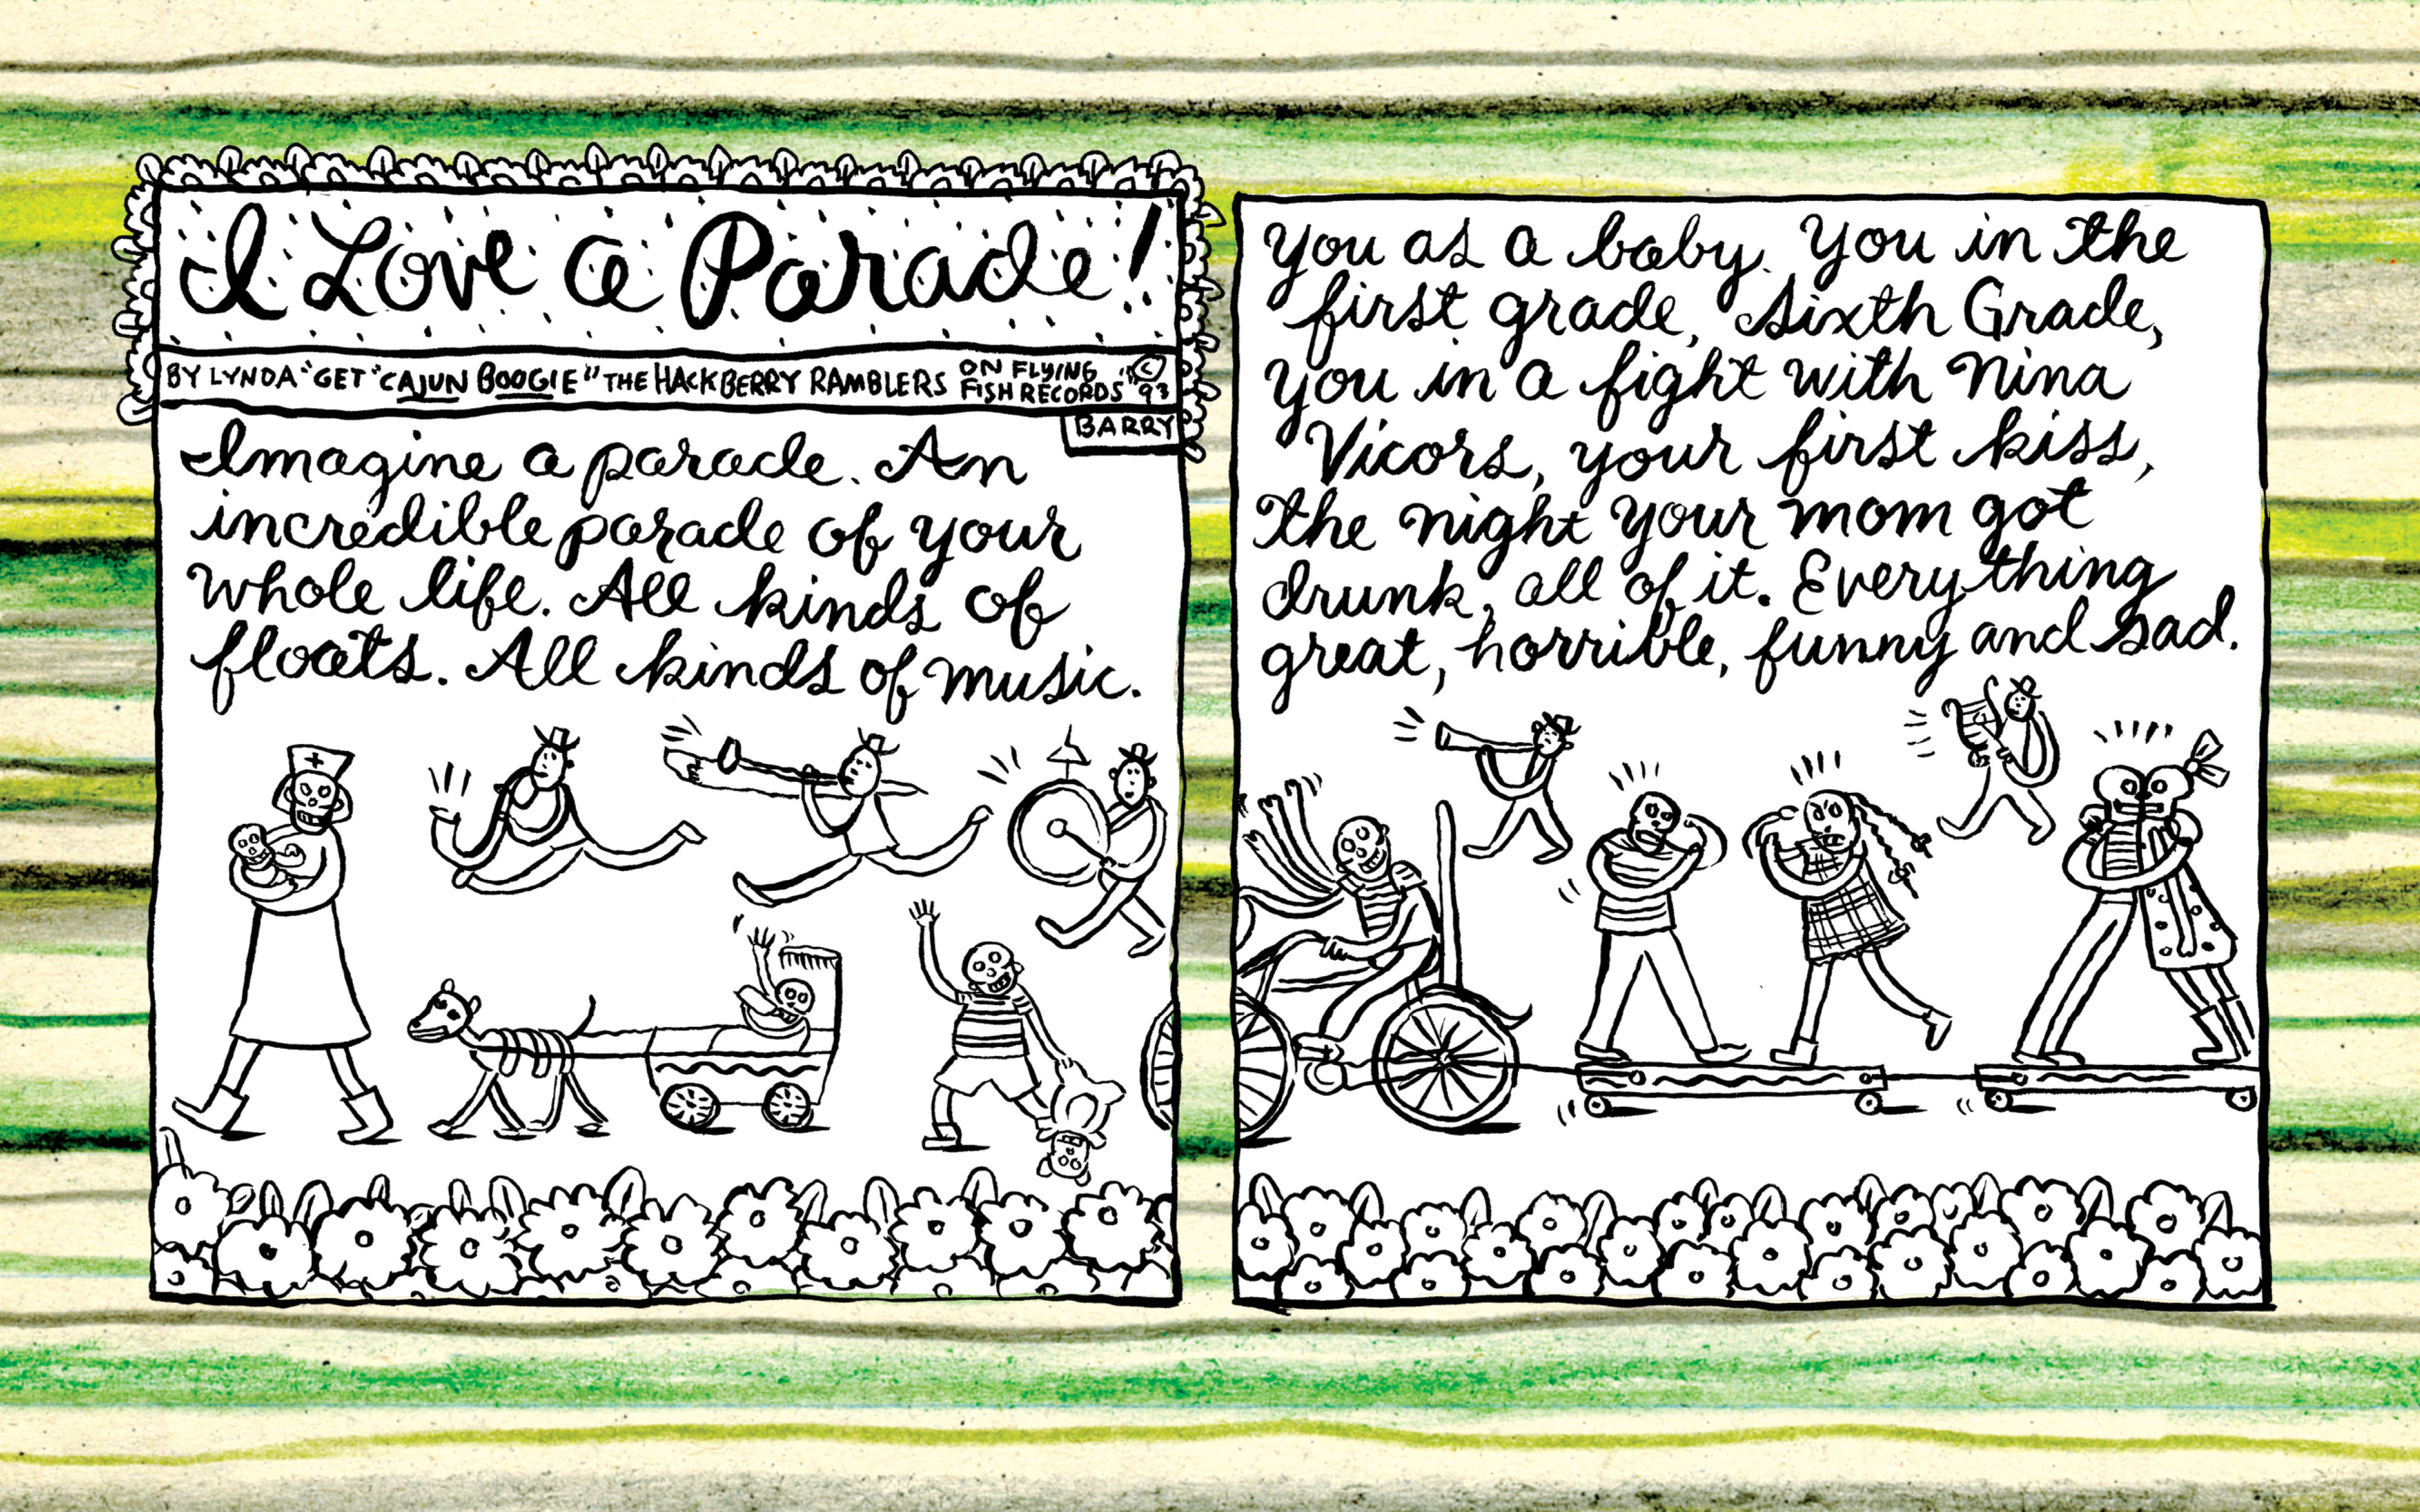 I Love a Parade!
BY LYNDA "GET "CAJUN BOOGIE" THE HACKBERRY RAMBLERS ON FLYING FISH RECORDS" © 93
BARRY
Imagine a parade. An
incredible parade of your
whole life. All kinds of
floats. All kinds of music.
You as a baby. You in the
first grade, Sixth Grade,
you in a fight with Nina
Vicors, your first kiss,
the night your mom got
drunk, all of it. Everything
great, horrible, funny and sad.